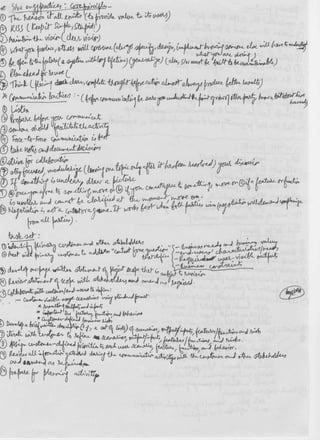 * S/w engg practices : Core principles -
① The reason it all exists (to provide value to its users)
② KISS (Keep it simple, stupid!)
③ maintain the vision (clear vision)
④ what you produce, others will consume (always specify, design, implement knowing someone else will have to understand what you are doing)
⑤ Be open to the future (a system with long lifetime) (generalize)
⑥ Plan ahead for reuse (
⑦ Think (placing clear, complete thought before action almost always produce better results)
* Communication practices :- (before communicating be sure you understand the point of view of other party, know a bit about his needs)
① Listen
② Prepare before you communicate
③ someone should facilitate the activity
④ Face-to-Face communication is best
⑤ take notes and document decisions
⑥ strive for collaboration
⑦ stay focused, modularize your discussion
⑧ If something is unclear, draw a picture
⑨ once you agree to something, move on ⓑ if you can't agree to something, move on ⓒ if a feature or function
is unclear and cannot be clarified at the moment, move on.
⑩ Negotiation is not a contest or a game. It works best when both parties win
from all parties).
task set :
① identify primary customer and other stakeholders
② meet with primary customer to address "context free questions" that define
- business needs and business values
- end-users' characteristics/needs
- Required user-visible outputs
- business constraints
③ develop one page written statement of project scope that is subject to revision
④ Review statement of scope with stakeholders and amend as required
⑤ Collaborate with customer/end-users to define :
- Customer visible usage scenarios using standard format
* resulting outputs and inputs
* important s/w features, functions and behavior
* Customer-defined business risks
⑥ Develop a brief written description (e.g. a set of lists) of scenarios, output/inputs, features/functions and risks
⑦ Iterate with customer to refine scenarios, output/inputs, features/functions and risks.
⑧ Assign customer-defined priorities to each user scenario, feature, function, and behavior.
⑨ Review all information gathered during the communication activity with the customer and other stakeholders
and amend as required
⑩ prepare for planning activity